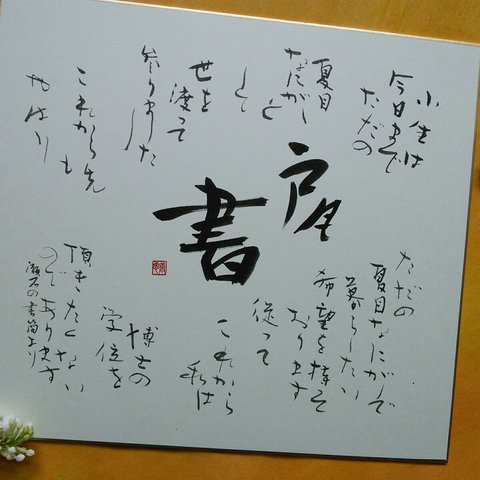 小生は
今日まで
ただの
夏目
なにがし
と
して
世を
渡って
参りました
これから先
も
やはり
ただの
夏目なにがしで
暮らしたい
希望を持って
おります
従って
これから
私は
博士の
学位を
頂きたくない
のであります
漱石の書簡より
書